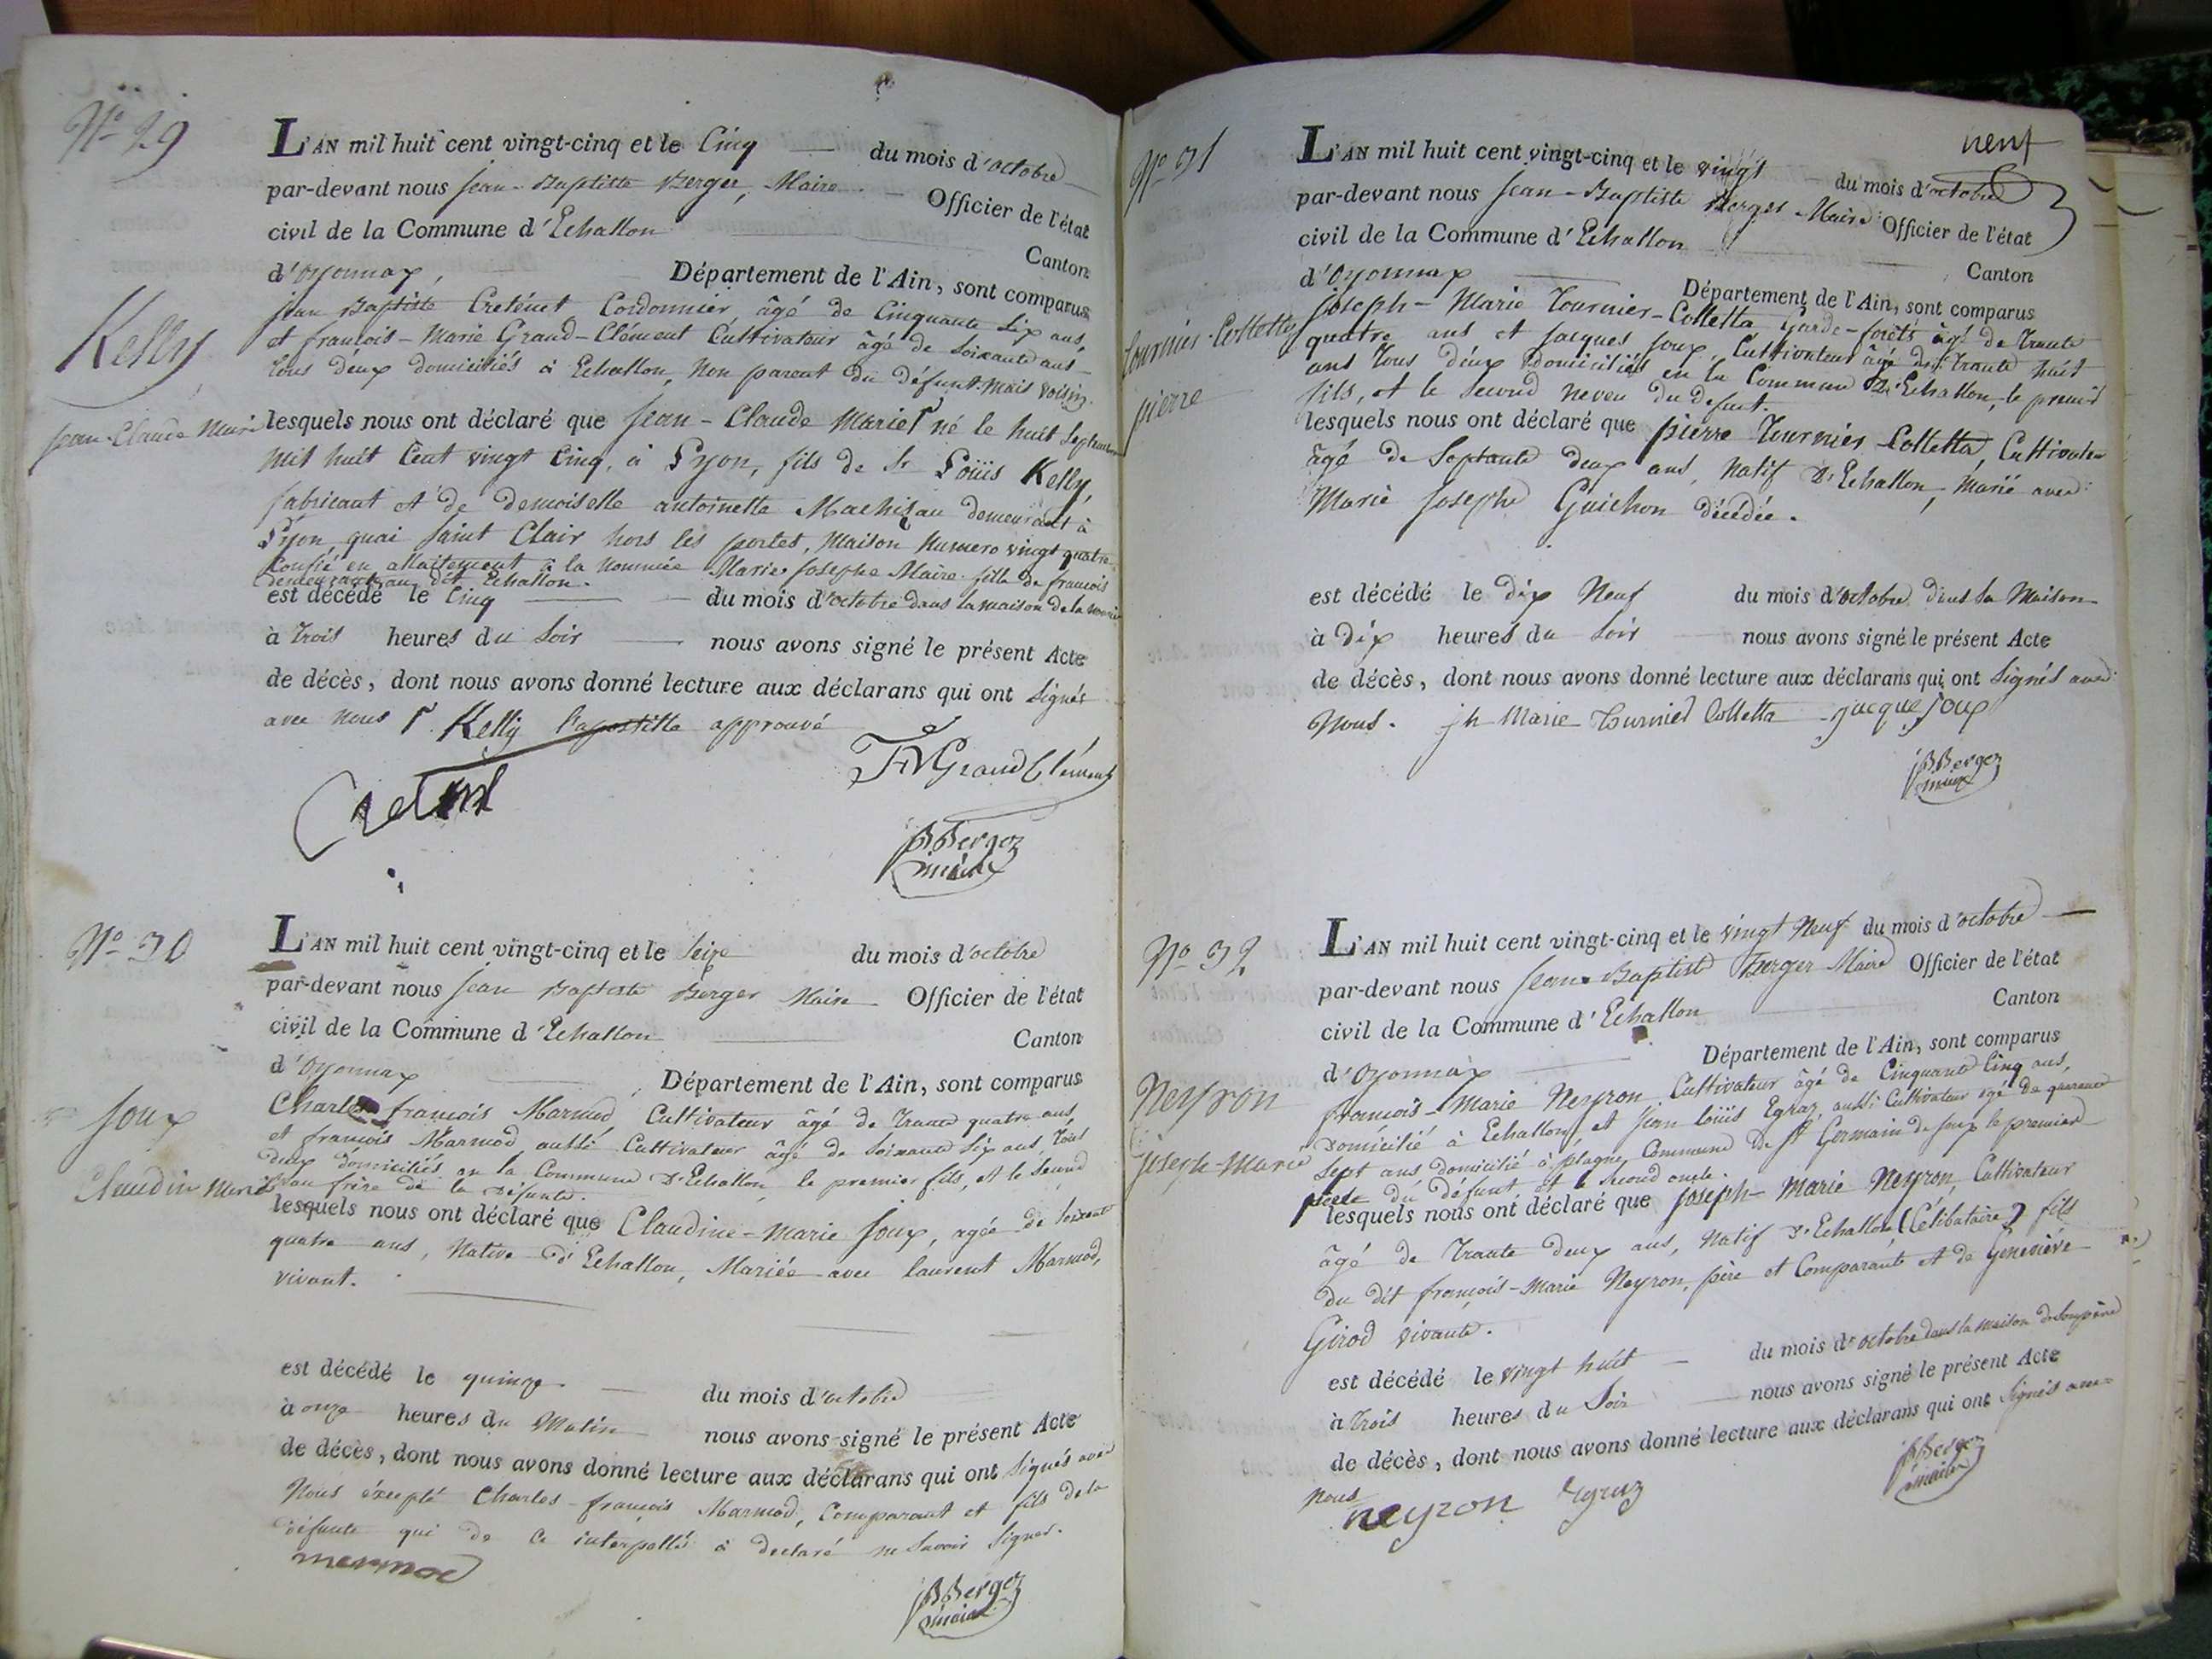 No 29
L'AN mil huit cent vingt-cinq et le Cinq du mois d'octobre
par-devant nous Jean-Baptiste Berger, Maire Officier de l'état
civil de la Commune d'Echallon
Canton
d'Oyonnax, Département de l'Ain, sont comparus
Jean Baptiste Creténet Cordonnier, âgé de Cinquante Six ans,
et françois-Marie Grand-Clément Cultivateur âgé de Soixante ans
tous deux domiciliés à Echallon, Non parent du défunt mais voisin.
Kelly
Jean-Claude Marie
lesquels nous ont déclaré que Jean-Claude Marie Γ né le huit Septembre
mil huit Cent vingt Cinq, à Lyon, fils de Sr Loüis Kelly,
fabricant et de demoiselle antoinette Machisau demeurant à
Lyon quai Saint Clair hors les portes, Maison Numero vingt quatre
Confié en allaitement à la nommée Marie Josephe Maire fille de françois
demeurante au dit Echallon.
est décédé le Cinq du mois d'octobre dans la maison de la nourrice
à trois heures du Soir nous avons signé le présent Acte
de décès, dont nous avons donné lecture aux déclarans qui ont Signés
avec nous Γ Kelly l'apostille approuvé
Cretenet
FM Grand Clément
JB Berger
maire
No 30
L'AN mil huit cent vingt-cinq et le Seize du mois d'octobre
par-devant nous Jean Baptiste Berger Maire Officier de l'état
civil de la Commune d'Echallon
Canton
d'Oyonnax Département de l'Ain, sont comparus
Charles françois Marmod, Cultivateur âgé de trante quatre ans,
et françois Marmod aussi Cultivateur âgé de Soixante Six ans, tous
deux domiciliés en la Commune d'Echallon, le premier fils, et le Second
beau frère de la défunte.
Joux
Claudin Marie
lesquels nous ont déclaré que Claudine-Marie Joux, agée de Soixante
quatre ans, Native d'Echallon, Mariée avec laurent Marmod,
vivant.
est décédé le quinze du mois d'octobre
à onze heures du Matin nous avons signé le présent Acte
de décès, dont nous avons donné lecture aux déclarans qui ont Signés avec
Nous éxcepté Charles-françois Marmod, Comparant et fils de la
défunte qui de Ce interpellé à declaré ne Savoir Signer.
mermod
JB Berger
maire
neuf
No 31
L'AN mil huit cent vingt-cinq et le vingt du mois d'octobre
par-devant nous Jean-Baptiste Berger Maire Officier de l'état
civil de la Commune d'Echallon
Canton
d'Oyonnax Département de l'Ain, sont comparus
Joseph-Marie Tournier-Colletta Garde-forêts âgé de trante
quatre ans et Jacques Joux, Cultivateur âgé de trante huit
ans tous deux domiciliés en la Commune d'Echallon, le premier
fils, et le Second neveu du defunt.
Tournier-Colletta
pierre
lesquels nous ont déclaré que pierre Tournier Colletta, Cultivateur
âgé de Soptante deux ans, Natif d'Echallon, marié avec
Marie Josephe Guichon décédée.
est décédé le dix Neuf du mois d'octobre dans Sa Maison
à dix heures du Soir nous avons signé le présent Acte
de décès, dont nous avons donné lecture aux déclarans qui ont Signés avec
Nous. jh Marie Tournier Colletta jacque joux
JB Berger
maire
No 32
L'AN mil huit cent vingt-cinq et le vingt Neuf du mois d'octobre
par-devant nous Jean-Baptiste Berger Maire Officier de l'état
civil de la Commune d'Echallon
Canton
d'Oyonnax Département de l'Ain, sont comparus
françois-Marie Neyron Cultivateur âgé de Cinquante Cinq ans,
Domicilié à Echallon, et Jean Loüis Egraz, aussi Cultivateur agé de quarante
Sept ans domicilié à plagne, Commune de St Germain de Joux le premier
père du défunt et le Second oncle.
Neyron
joseph-Marie
lesquels nous ont déclaré que Joseph-Marie Neyron, Cultivateur
âgé de Trante deux ans, Natif d'Echallon, (Célibataire) fils
du dit françois-Marie Neyron, père et Comparante et de Geneviève
Girod vivante.
est décédé le vingt huit du mois d'octobre dans la maison de Son père
à trois heures du Soir nous avons signé le présent Acte
de décès, dont nous avons donné lecture aux déclarans qui ont Signés avec
nous
neyron Egraz
JB Berger
maire